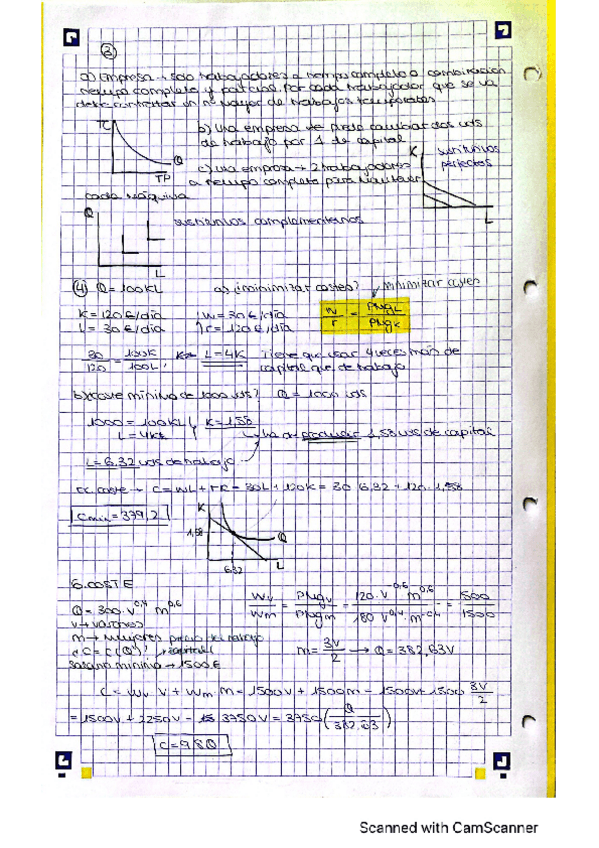 3
a) Empresa → solo trabajadores a tiempo completo o combinación
tiempo completo y parcial. Por cada trabajador que se va
debe contratar un nº mayor de trabajos temporales
TC
Q
TP
b) Una empresa le puede cambiar dos uds
de trabajo por 1 de capital
K
sustitutivos
perfectos
L
c) una empresa → 2 trabajadores
a tiempo completo para
cada máquina
Q
L
sustitutivos complementarios
4 Q = 100KL a) ¿minimizar costes? minimizar costes
K = 120€/día W = 30€/día W/r = PMgL/PMgK
L = 30€/día r = 120€/día
30/120 = 100K/100L, L = 4K Tiene que usar 4 veces más de
capital que de trabajo
b) coste mínimo de 1000 uds? Q = 1000 uds
1000 = 100KL K = 1,58
L = 4K
producir 1,58 uds de capital
L = 6,32 uds de trabajo
cc. coste → C = WL + rK = 30L + 120K = 30·6,32 + 120·1,58
Cmin = 379,2
K
1,58
Q
6,32
L
6. COSTE
Q = 300·V^0,4 M^0,6
V → varones
M → mujeres
¿C = C(Q)?
salario mínimo → 1500€
Wv/Wm = PMgv/PMgm = 120·V^-0,6 M^0,6 / 180 V^0,4 · M^-0,4 = 1500/1500
m = 3V/2 → Q = 382,63V
C = Wv·V + Wm·M = 1500V + 1500M = 1500V + 1500 3V/2
= 1500V + 2250V = 3750V = 3750(Q/382,63)
C = 9,8Q
Scanned with CamScanner